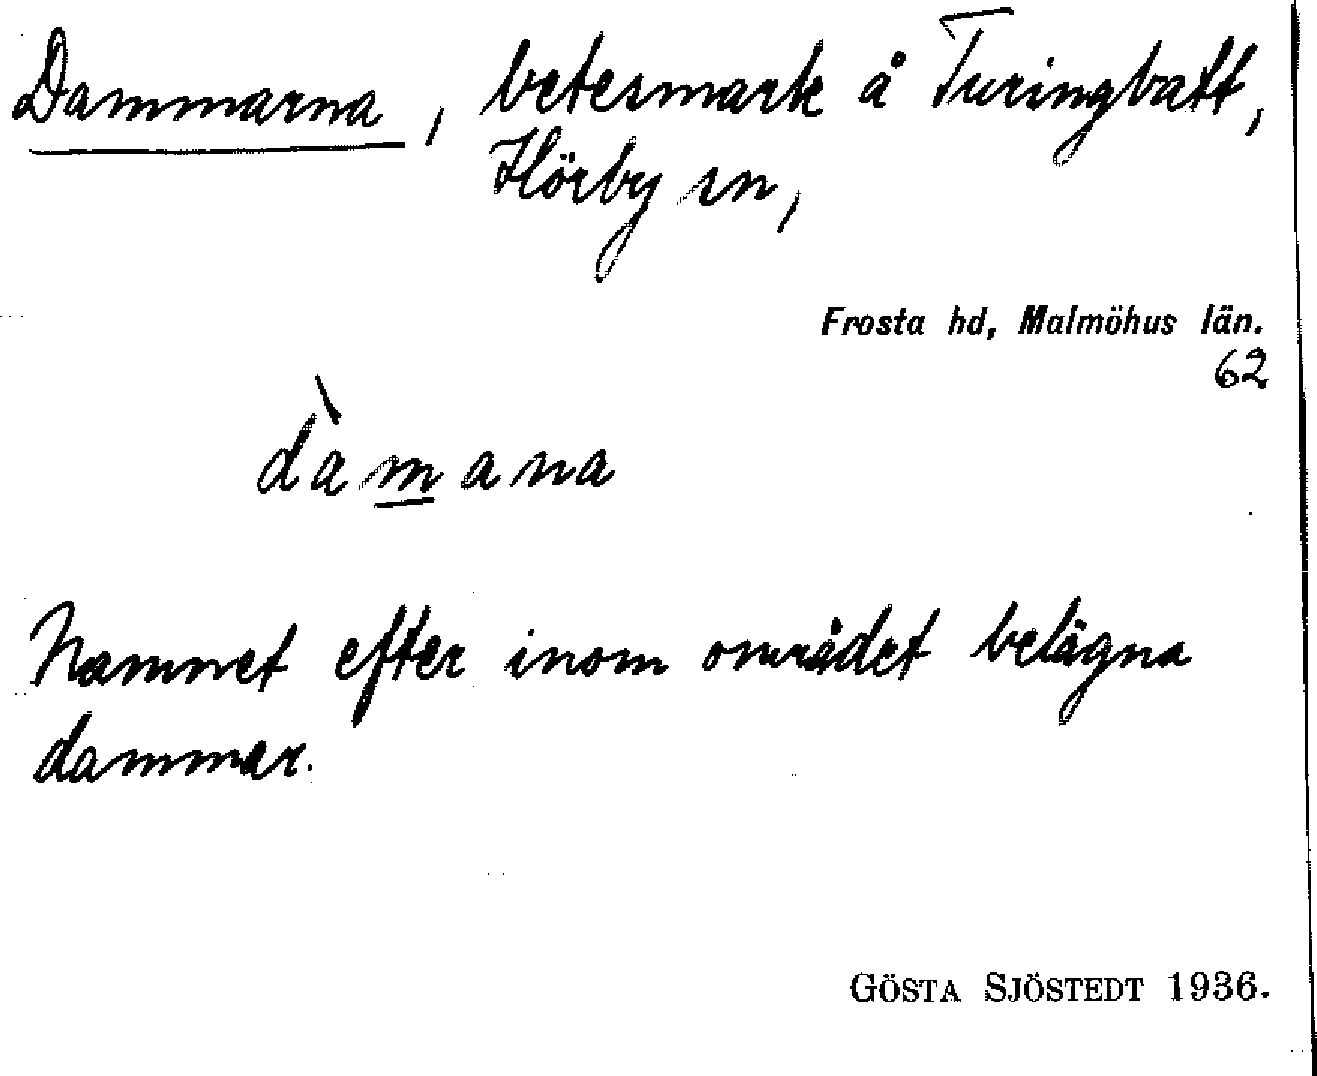 Dammarna, betesmark å Turingbatt,
Hörby sn,
Frosta hd, Malmöhus län.
62
dàmana
Namnet efter inom området belägna
dammar.
GÖSTA SJÖSTEDT 1936.